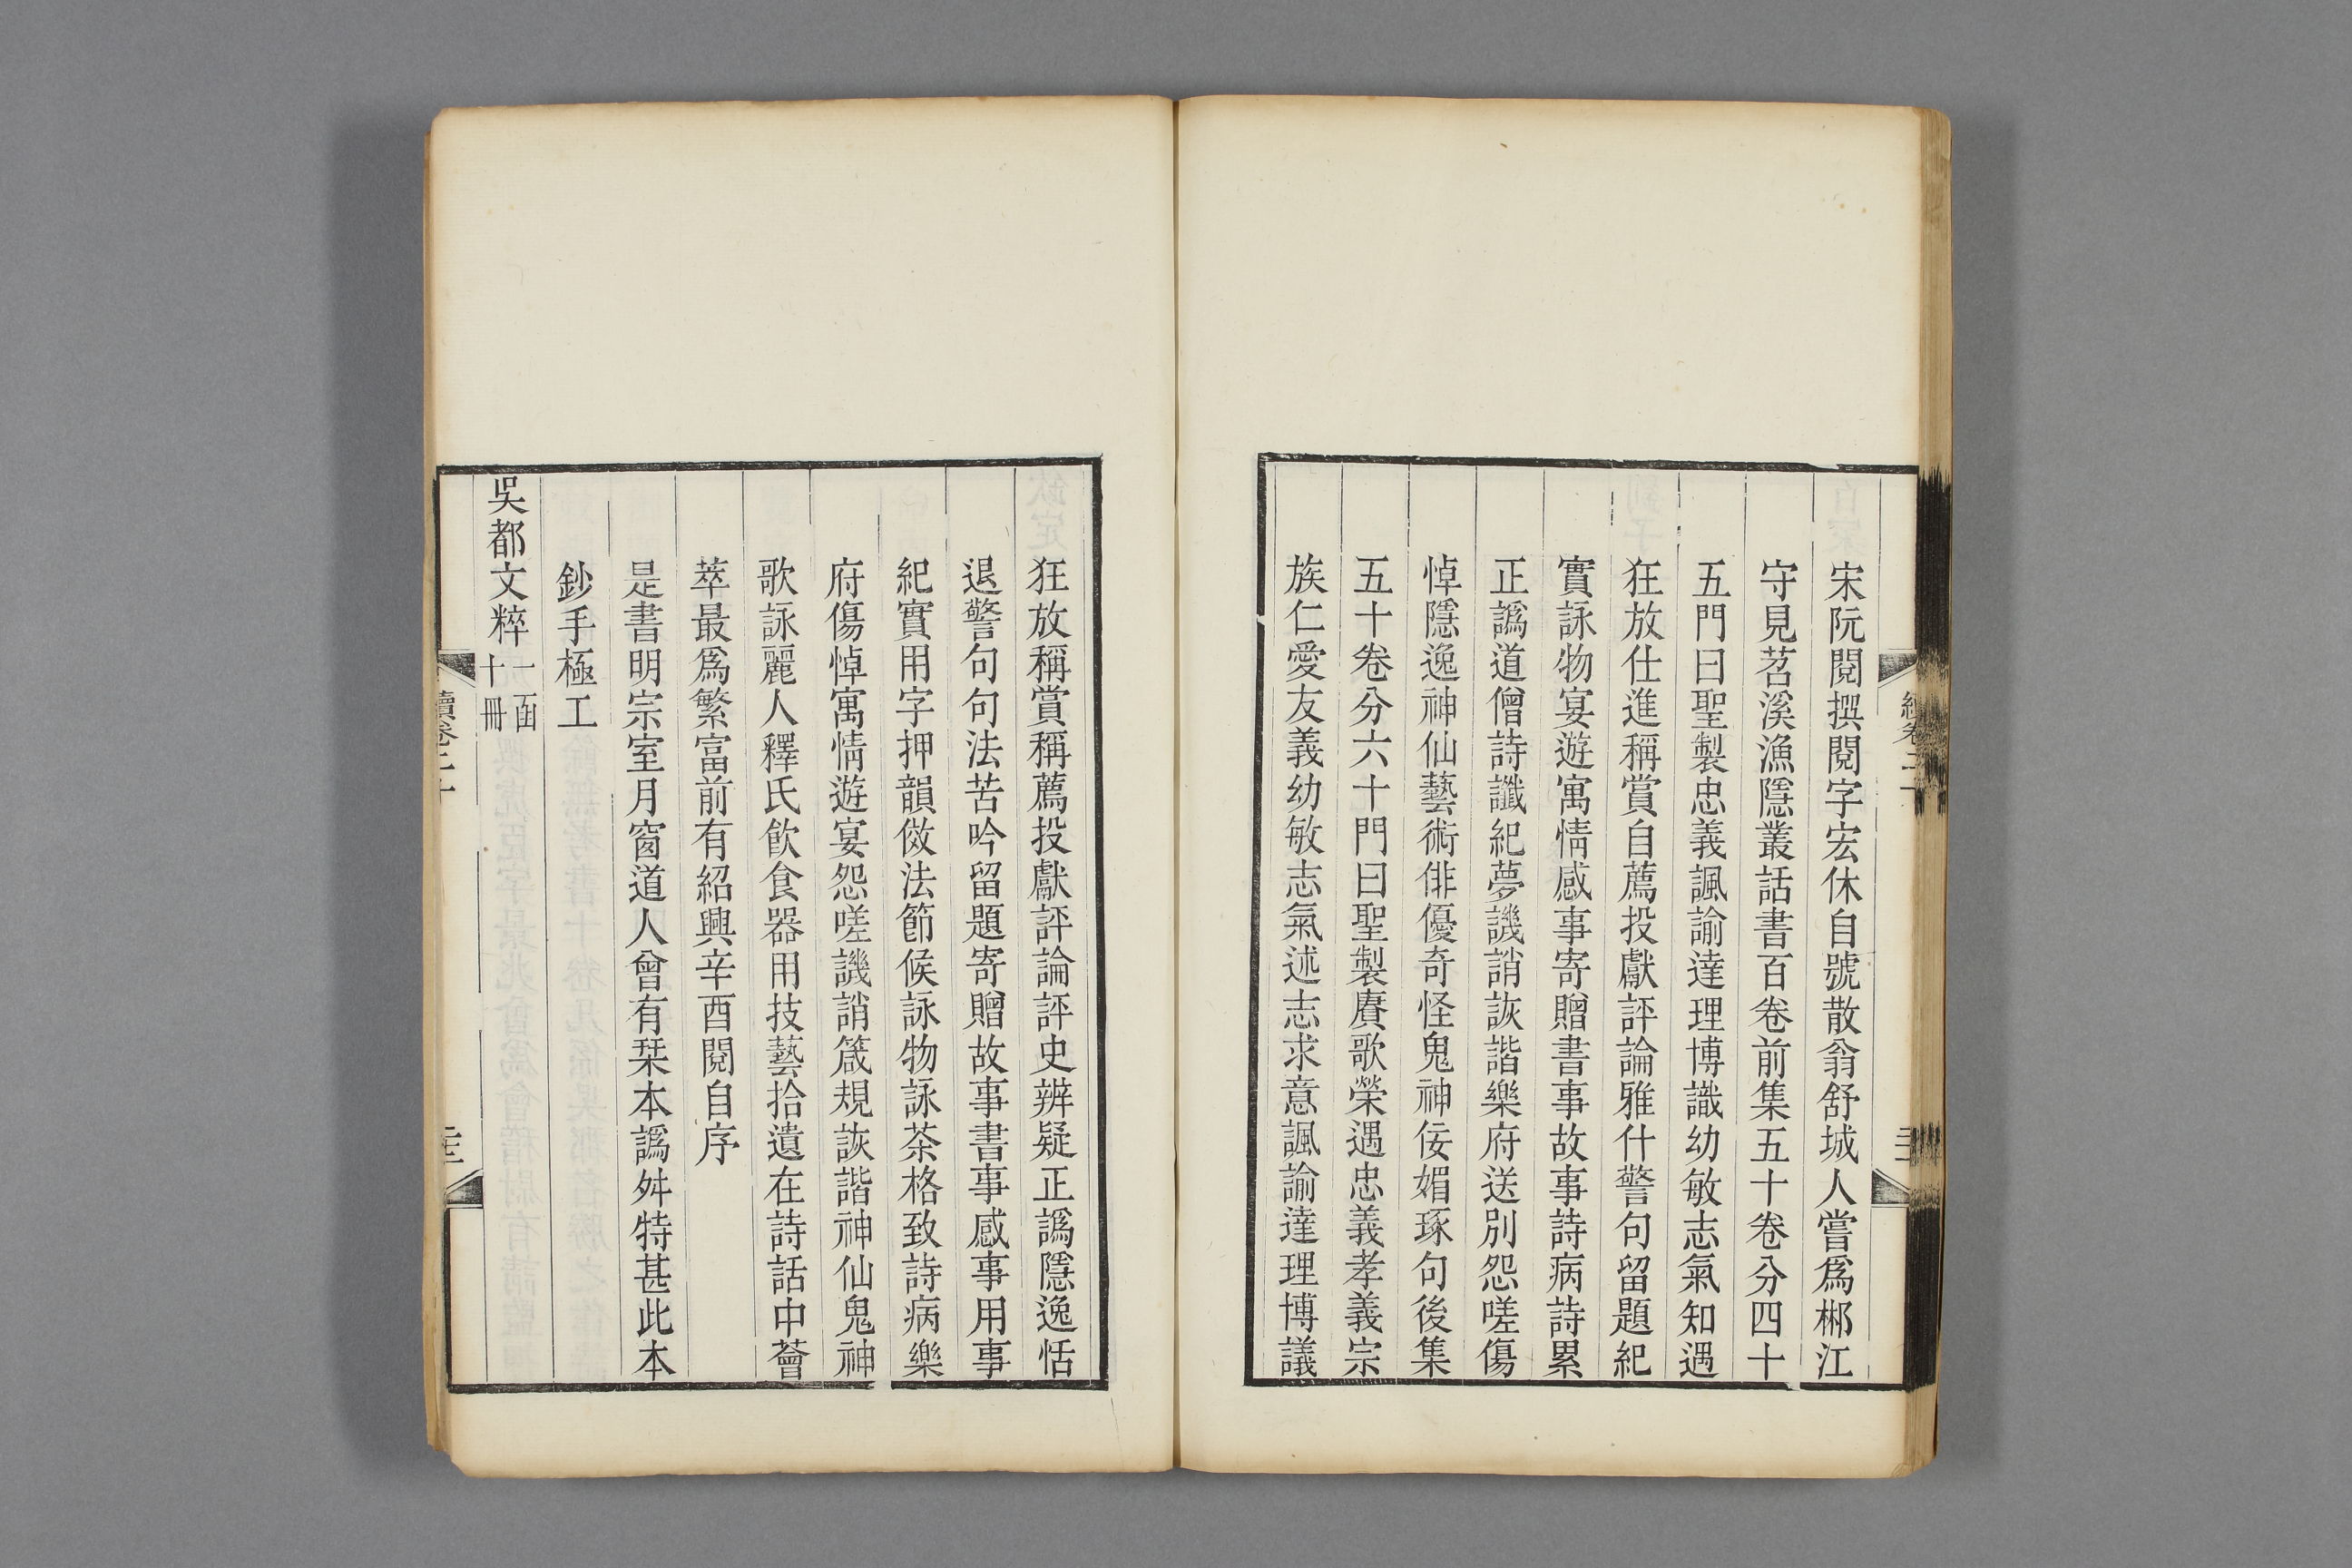 宋阮閱撰閱字宏休自號散翁舒城人嘗爲郴江
守見苕溪漁隱叢話書百卷前集五十卷分四十
五門曰聖製忠義諷諭達理博識幼敏志氣知遇
狂放仕進稱賞自薦投獻評論雅什警句留題紀
實詠物宴遊寓情感事寄贈書事故事詩病詩累
正譌道僧詩讖紀夢譏誚詼諧樂府送別怨嗟傷
悼隱逸神仙藝術俳優奇怪鬼神佞媚琢句後集
五十卷分六十門曰聖製賡歌榮遇忠義孝義宗
族仁愛友義幼敏志氣述志求意諷諭達理博議
狂放稱賞稱薦投獻評論評史辨疑正譌隱逸恬
退警句句法苦吟留題寄贈故事書事感事用事
紀實用字押韻傚法節候詠物詠茶格致詩病樂
府傷悼寓情遊宴怨嗟譏誚箴規詼諧神仙鬼神
歌詠麗人釋氏飲食器用技藝拾遺在詩話中薈
萃最爲繁富前有紹興辛酉閱自序
是書明宗室月窗道人曾有栞本譌舛特甚此本
鈔手極工
吳都文粹一函
十冊
續卷二十